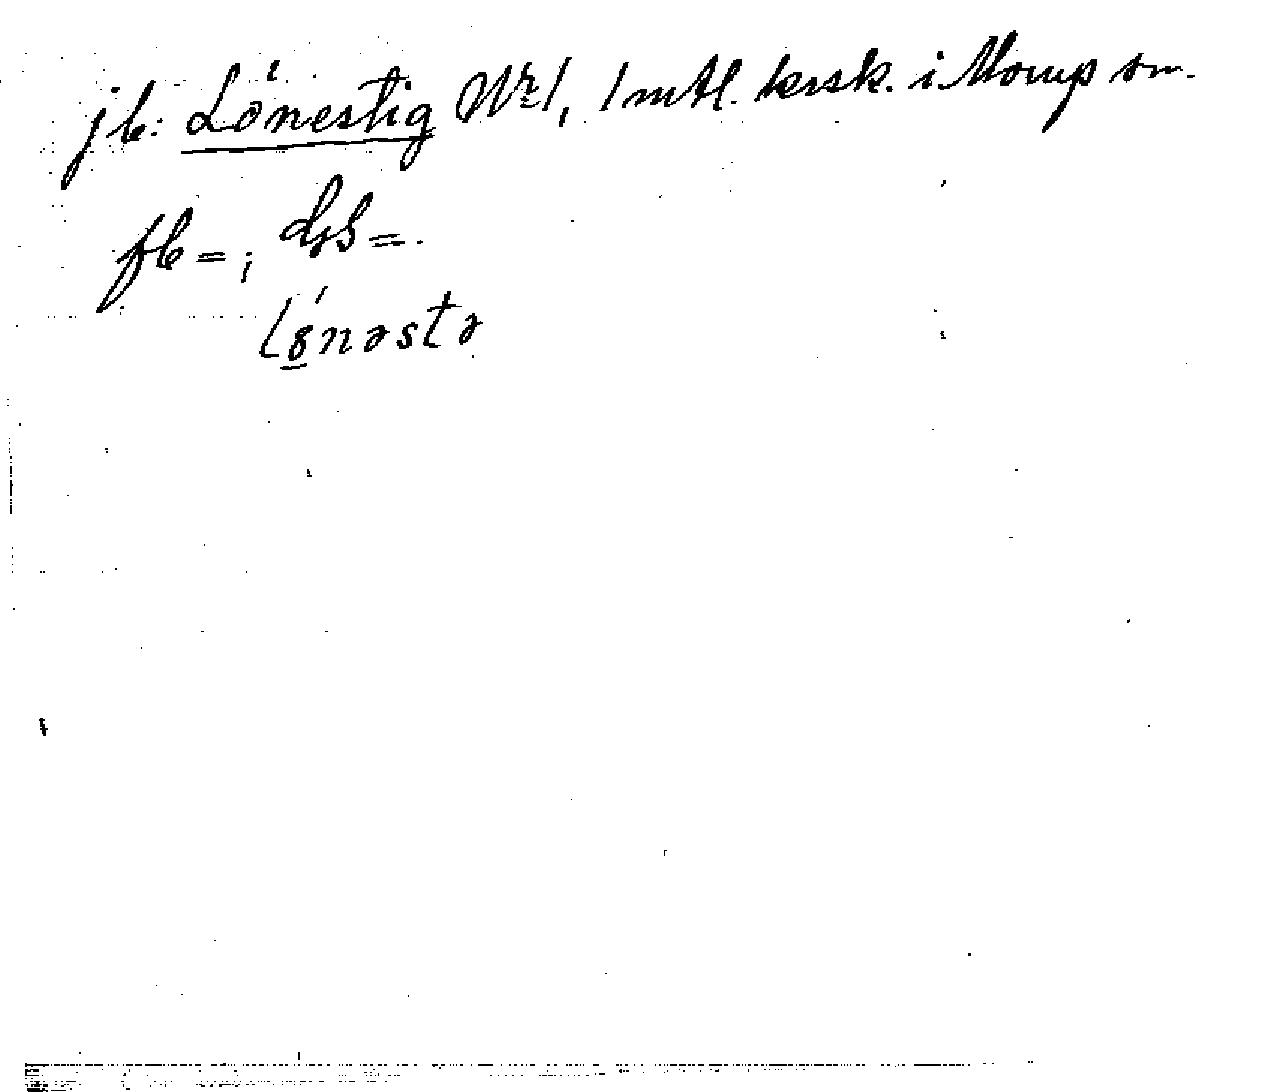 jb: Lönestig Nr1, 1 mtl. krsk. i Morup sn.
fb = ; dgs = .
Lönəstə